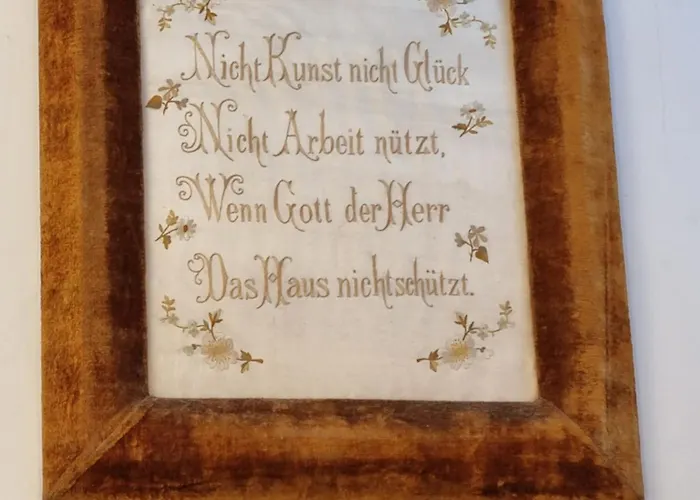 Nicht Kunst nicht Glück
Nicht Arbeit nützt,
Wenn Gott der Herr
Das Haus nicht schützt.